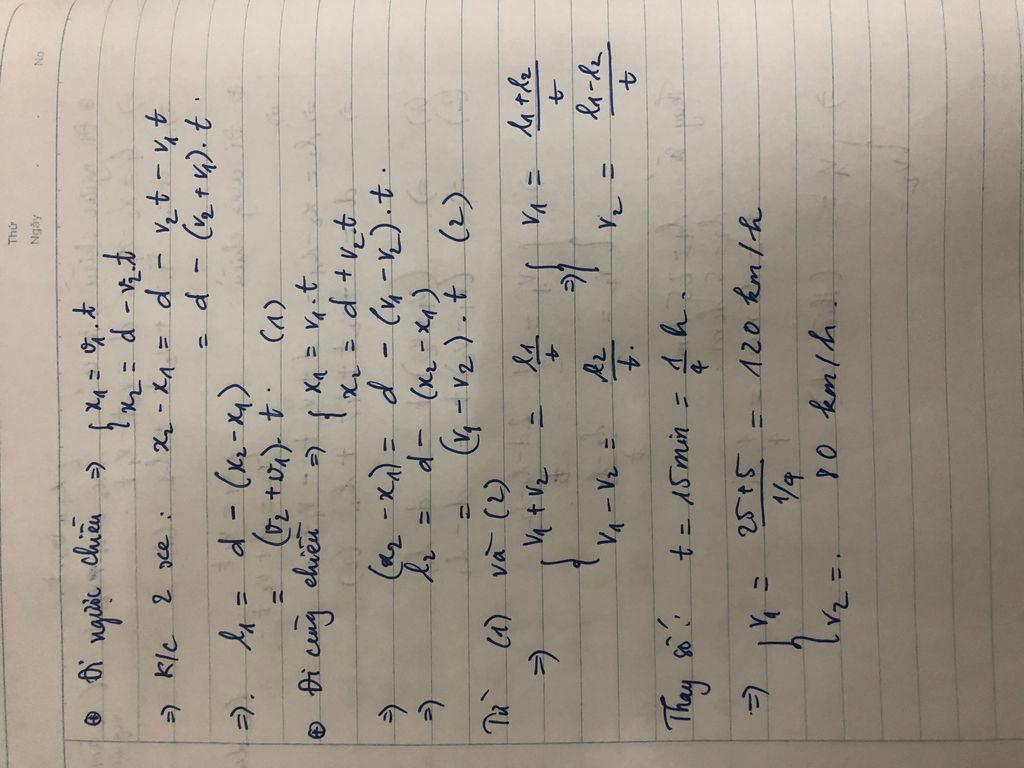 Thứ
Ngày
No
⊕ Đi ngược chiều ⇒ { x₁ = v₁.t
x₂ = d − v₂.t
⇒ K/c 2 xe : x₂ − x₁ = d − v₂t − v₁t
= d − (v₂ + v₁).t.
⇒. l₁ = d − (x₂ − x₁)
= (v₂ + v₁).t. (1)
⊕ Đi cùng chiều ⇒ { x₁ = v₁.t
x₂ = d + v₂t
⇒ (x₂ − x₁) = d − (v₁ − v₂).t.
⇒ l₂ = d − (x₂ − x₁)
= (v₁ − v₂).t (2)
Từ (1) và (2)
⇒ { v₁ + v₂ = l₁/t ⇒ { v₁ = (l₁ + l₂)/t
v₁ − v₂ = l₂/t. v₂ = (l₁ − l₂)/t
Thay số: t = 15min = 1/4 h.
⇒ { v₁ = (25 + 5)/(1/4) = 120 km/h
v₂ =. 80 km/h.